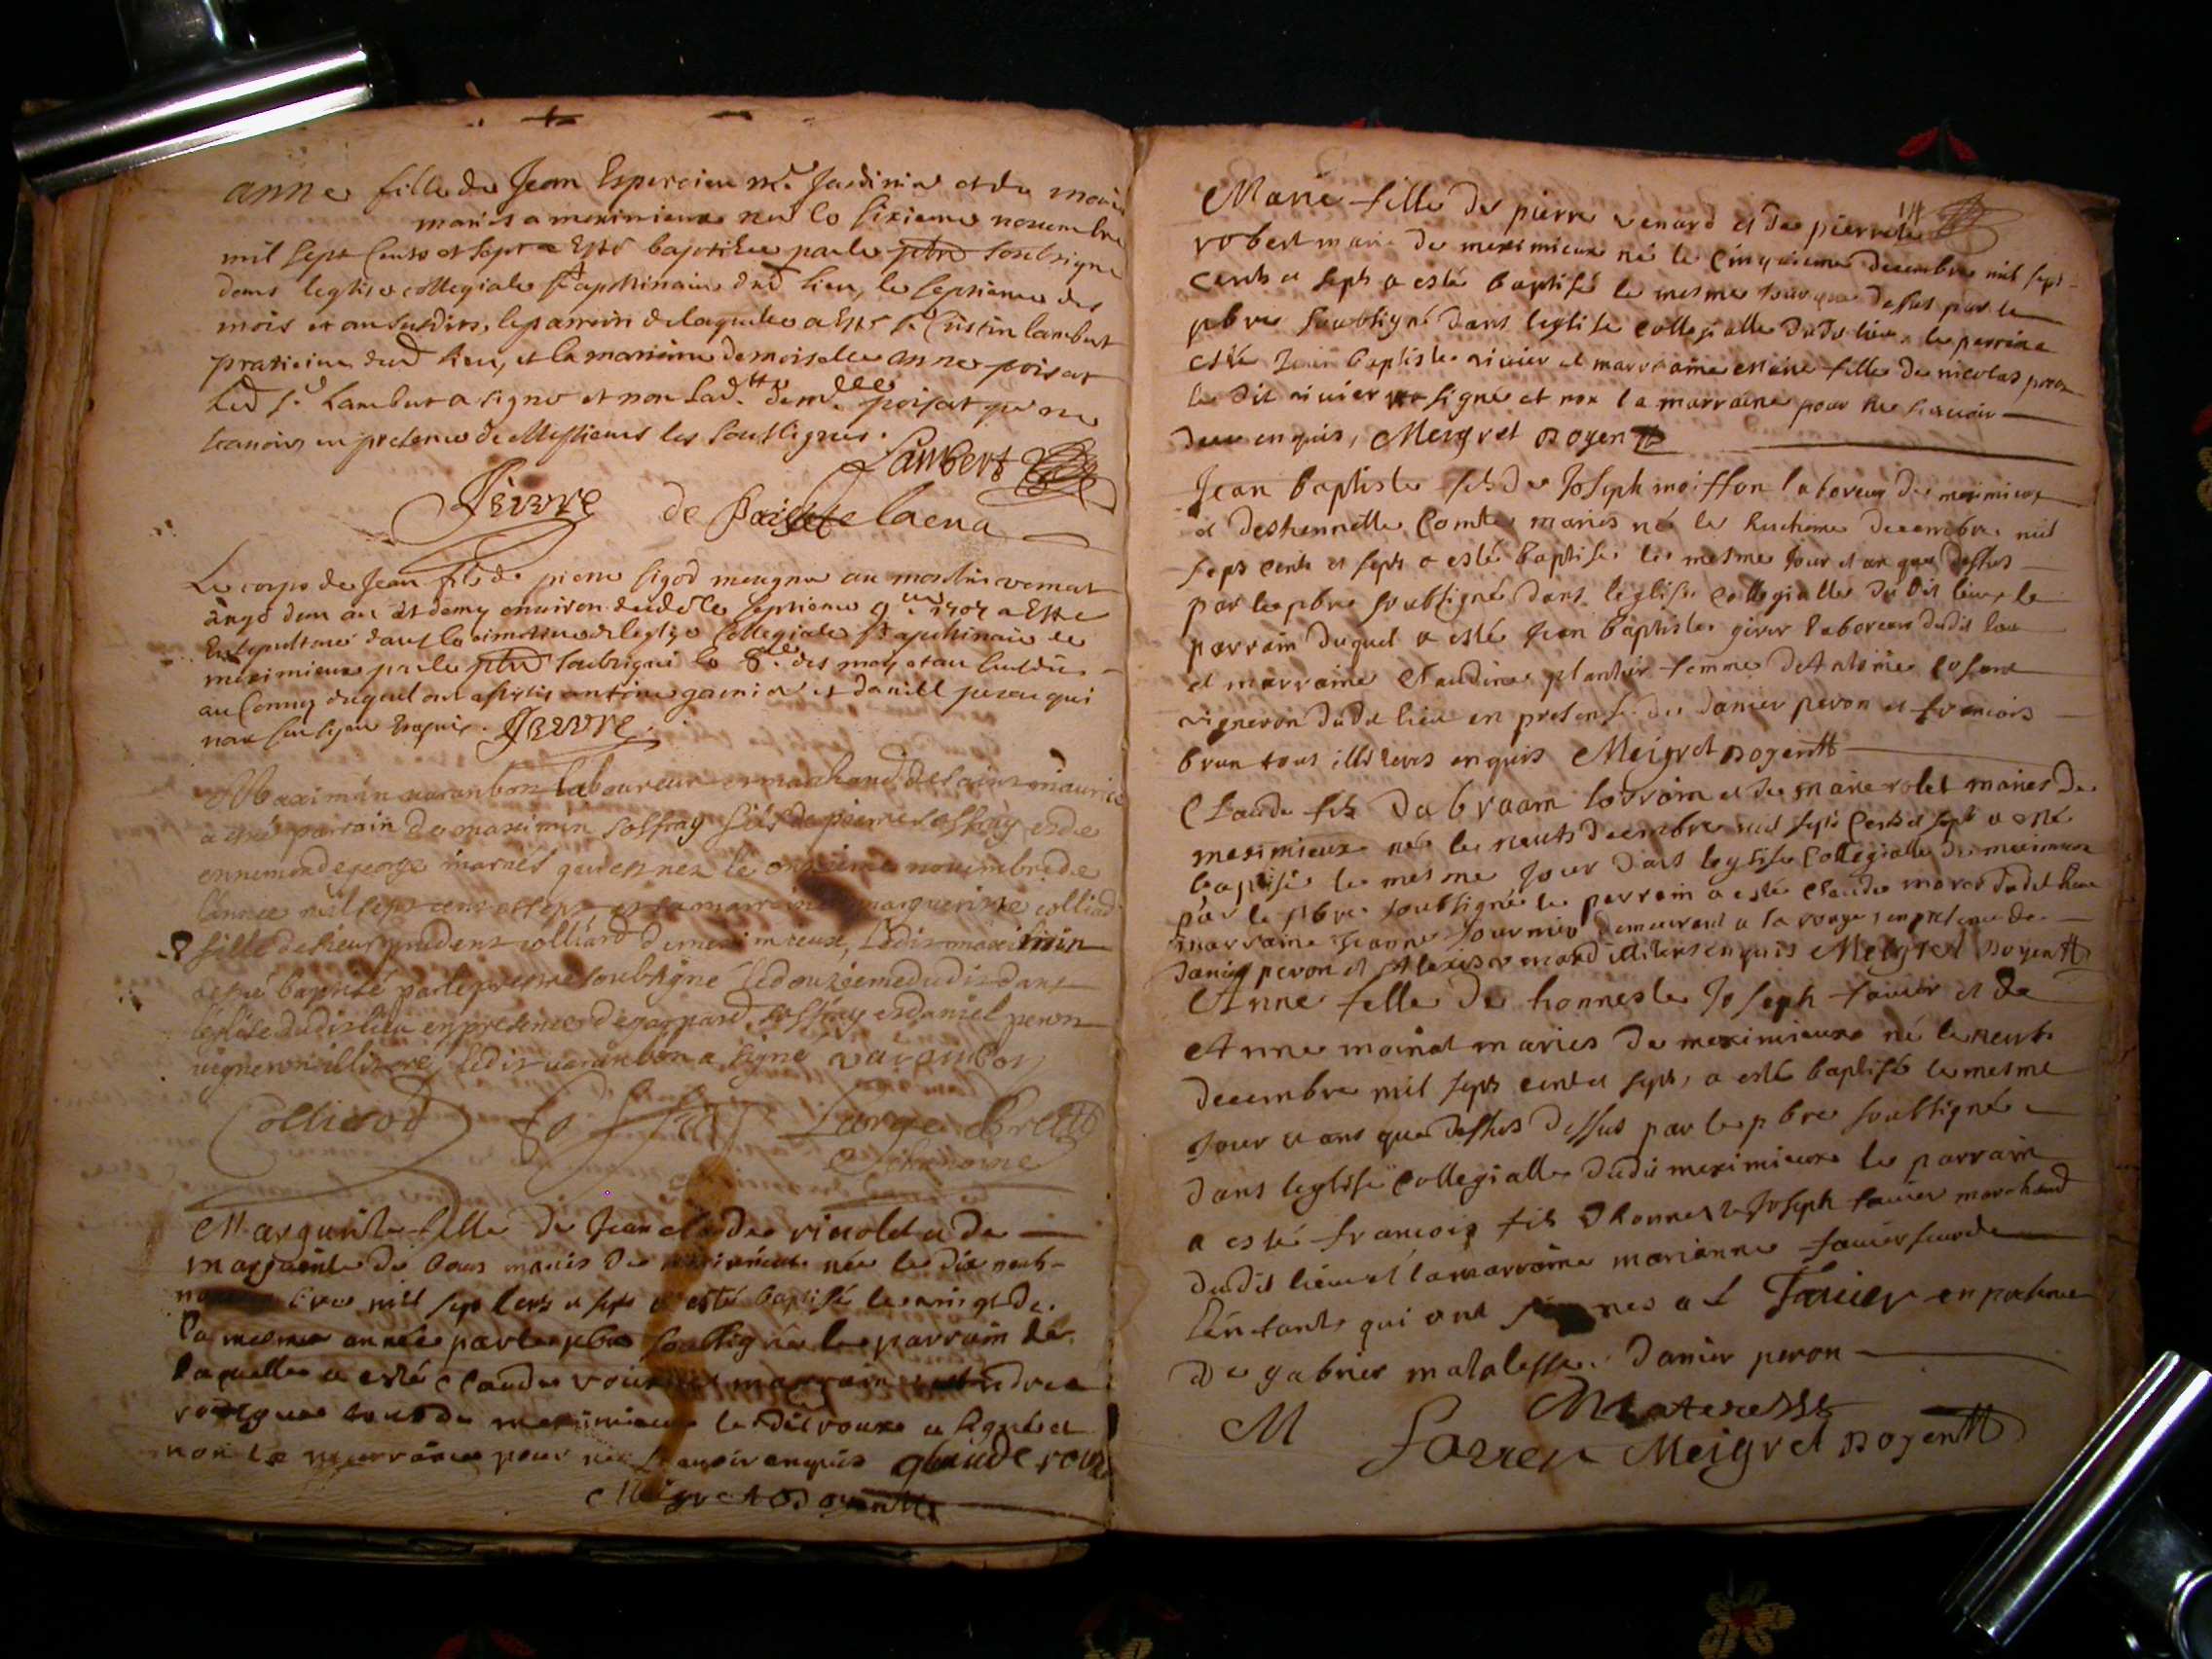 anne fille de Jean Espercieu Me. Jardinier et de
maries a meximieux née le sixieme novembre
mil sept Cents et sept a Esté baptizée par le pbre soubsigné
dans leglise collegiale St apollinaire dud lieu, le septieme des
mois et an susdits, le parrein de laquelle a Esté Sr. Lambert
praticien dud lieu, et la marrine demoiselle anne poisat
Led Sr. Lambert a signé et non lad. demlle poisat pour ne
scavoir, en presence de Messieurs les soussignes.
Lambert
Favre de
Le corps de Jean fils de pierre sigod meugnier au moulin
angé dun an et demy environ decedé le septieme 9bre 1707 a Esté
Ensepulturé dans le cimetiere de leglize Collegiale St apolinaire de
meximieux par le pbre soubsigné le 8e. des moys et an susdits
au Convoy duquel ont assistés antoine garnier et daniell peron qui
non sceu signer Enquis. Favre
Maximin varanbon laboureur et marchand de saint maurice
a esté parrain de maximin soffray fils de pierre soffray et de
ennemonde george mariés qui est nez le onzieme novembre de
l'année mil sept cent et sept, et la marreine marguerite colliad
fille de sieur prudent colliard de meximieux, Ledit maximin
a esté baptisé par le prestre soubsigné le douzieme dudit dans
l'eglise dudit lieu en presence de gaspard soffray et daniel peron
vigneron illiteré, ledit varanbon a signé varanbon
Colliard soffray
Chanoine
Marguerite fille de Jean claude rivolet et de
marguerite du bour mariés de meximieux née le dix neuf
novembre mil sept cens et sept a esté baptisé le vingt de
la mesme année par le pbre soubsigné le parrain de
laquelle a esté claude roux et marraine andrea
tous de meximieux le dit roux a signé et
non la marraine pour ne scavoir enquis glaude roux
Meigret Doyen
114
Marie fille de pierre venard et de pierrete
robert mariés de meximieux né le cinquieme decembre mil sept
cents et septs a esté baptisé le mesme jour que dessus par le
pbre soubsigné dans leglise collegialle dudt lieu, le perrine
esté Jean baptiste rivier et marraine marie fille de nicolas
le dit rivier signé et non la marraine pour ne scavoir
deux enquis, Meigret Doyen
Jean baptiste fils de Joseph moiffon laboreur de meximieux
et destiennette Comte mariés né le huitieme decembre mil
septs cents et septs a esté baptisé le mesme jour et an que dessus
par le pbre soubsigné dans leglise collegialle dudit lieu, le
parrain duquel a esté Jean baptiste girer laboreur dudit lieu
et marraine Claudine plantier femme de Antoine
vigneron dudit lieu en presense de danier peron et francois
brun tous illiteres enquis Meigret Doyen
Claude fils dabraam lorrain et de marie rolet mariés de
meximieux né le neuf decembre mil septs Cents et septs a esté
baptisé le mesme jour dans leglise collegialle de meximieux
par le pbre soubsigné le perrain a esté claude morel dudit lieu
marraine jeanne fournier demeurant a la rouge, en presence de
danier peron et Alexis venard illiters enquis Meigret Doyen
Anne fille de honneste Joseph favier et de
Anne moinat mariés de meximieux né le neuf
decembre mil septs cent et septs, a esté baptisé le mesme
jour et ans que dessus dessus par le pbre soubsigné
dans leglise collegialle dudit meximieux le parrain
a esté francois fils dhonneste Joseph favier marchand
dudit lieu et la marraine marianne favier
Lenfants qui ont signes Favier en presence
de gabrier matalesse danier peron
M Materesse
Favier Meigret Doyen